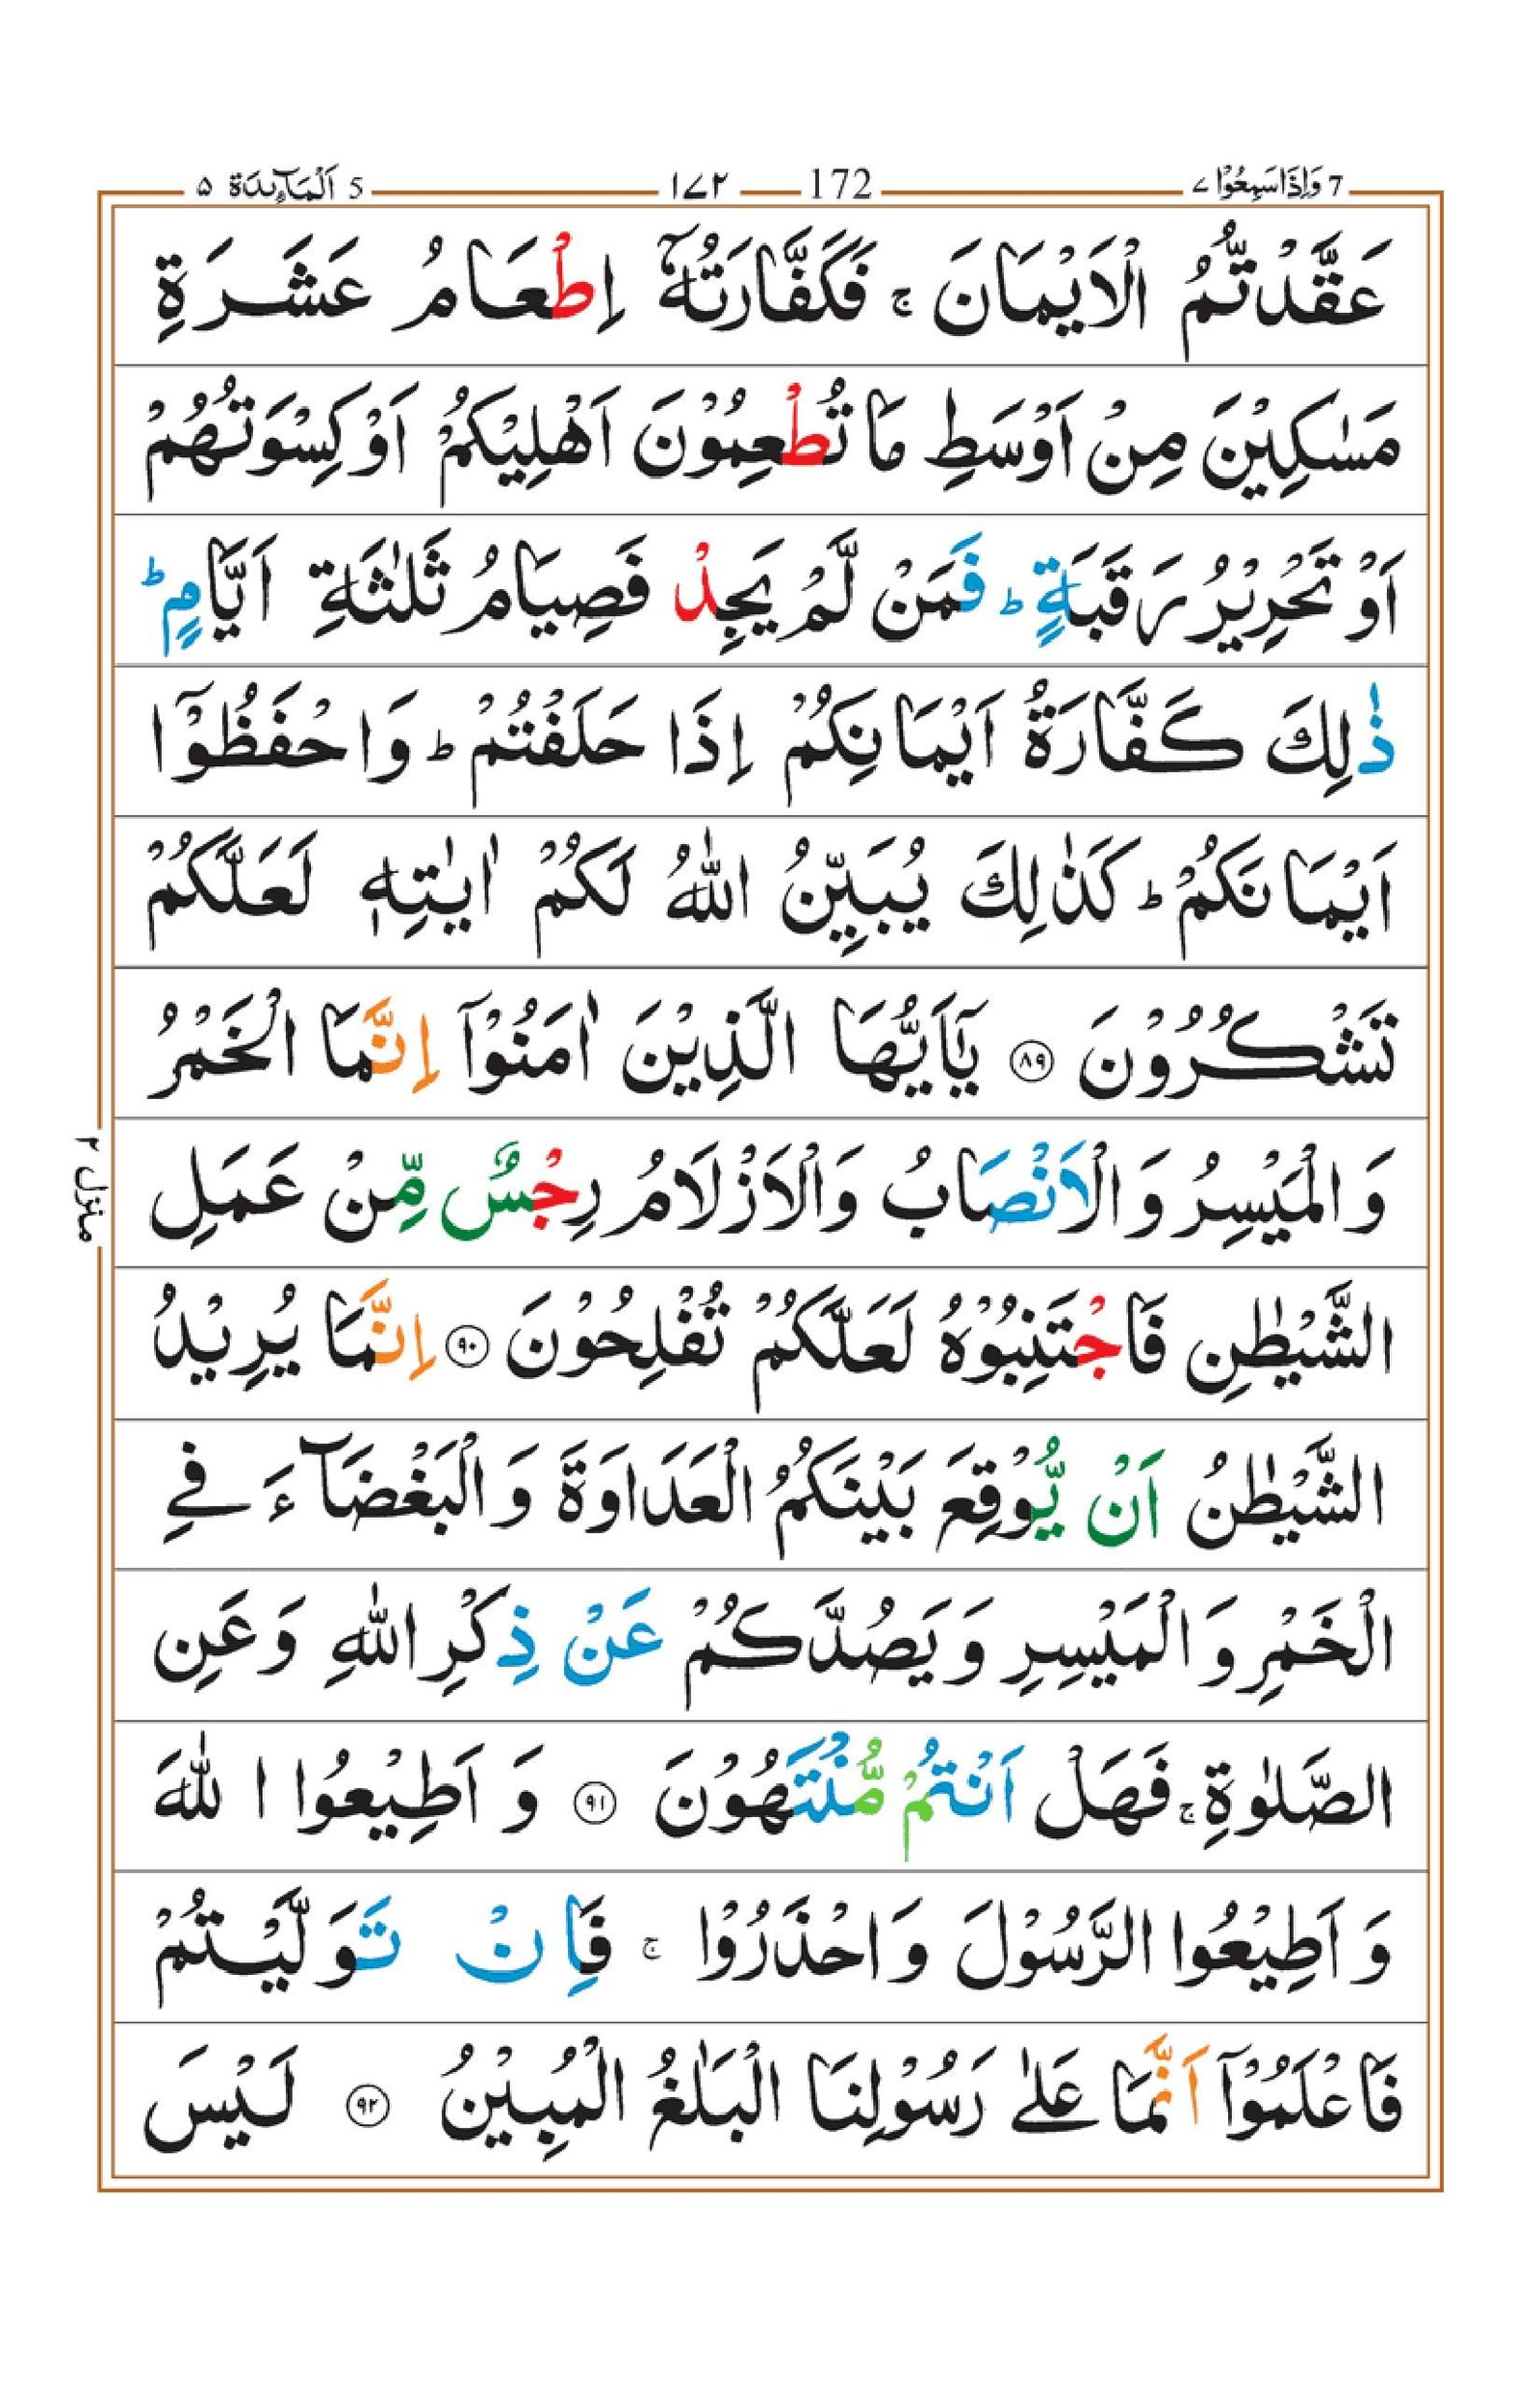 7 وَاِذَا سَمِعُوْا ٧ 172 ١٧٢ 5 اَلْمَآئِدَة ٥
عَقَّدْتُّمُ الْاَيْمَانَ ۚ فَكَفَّارَتُهٗۤ اِطْعَامُ عَشَرَةِ
مَسٰكِيْنَ مِنْ اَوْسَطِ مَا تُطْعِمُوْنَ اَهْلِيْكُمْ اَوْ كِسْوَتُهُمْ
اَوْ تَحْرِيْرُ رَقَبَةٍ ؕ فَمَنْ لَّمْ يَجِدْ فَصِيَامُ ثَلٰثَةِ اَيَّامٍ ؕ
ذٰلِكَ كَفَّارَةُ اَيْمَانِكُمْ اِذَا حَلَفْتُمْ ؕ وَاحْفَظُوْۤا
اَيْمَانَكُمْ ؕ كَذٰلِكَ يُبَيِّنُ اللّٰهُ لَكُمْ اٰيٰتِهٖ لَعَلَّكُمْ
تَشْكُرُوْنَ ﴿٨٩﴾ يٰۤاَيُّهَا الَّذِيْنَ اٰمَنُوْۤا اِنَّمَا الْخَمْرُ
وَالْمَيْسِرُ وَالْاَنْصَابُ وَالْاَزْلَامُ رِجْسٌ مِّنْ عَمَلِ
الشَّيْطٰنِ فَاجْتَنِبُوْهُ لَعَلَّكُمْ تُفْلِحُوْنَ ﴿٩٠﴾ اِنَّمَا يُرِيْدُ
الشَّيْطٰنُ اَنْ يُّوْقِعَ بَيْنَكُمُ الْعَدَاوَةَ وَالْبَغْضَآءَ فِي
الْخَمْرِ وَالْمَيْسِرِ وَيَصُدَّكُمْ عَنْ ذِكْرِ اللّٰهِ وَعَنِ
الصَّلٰوةِ ۚ فَهَلْ اَنْتُمْ مُّنْتَهُوْنَ ﴿٩١﴾ وَاَطِيْعُوا اللّٰهَ
وَاَطِيْعُوا الرَّسُوْلَ وَاحْذَرُوْا ۚ فَاِنْ تَوَلَّيْتُمْ
فَاعْلَمُوْۤا اَنَّمَا عَلٰى رَسُوْلِنَا الْبَلٰغُ الْمُبِيْنُ ﴿٩٢﴾ لَيْسَ
منزل ٢